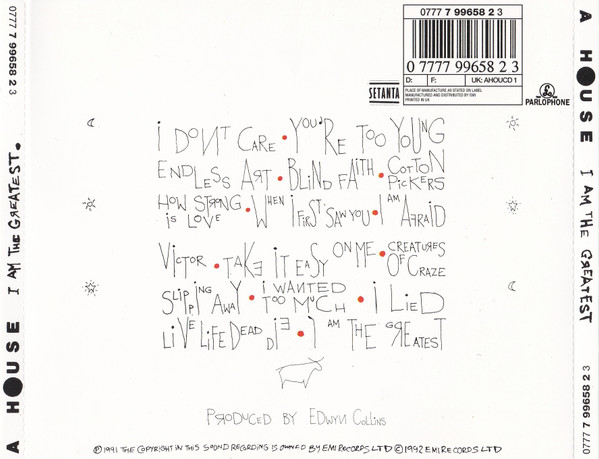 0777 7 99658 2 3
A HOUSE I AM THE GREATEST.
0777 7 99658 2 3
0 7777 99658 2 3
D: F: UK: AHOUCD 1
PLACE OF MANUFACTURE AS STATED ON LABEL
MANUFACTURED AND DISTRIBUTED BY EMI
PRINTED IN UK
SETANTA
PARLOPHONE
I DON'T CARE • YOU'RE TOO YOUNG
ENDLESS ART • BLIND FAITH • COTTON PICKERS
HOW STRONG IS LOVE • WHEN I FIRST SAW YOU • I AM AFRAID
VICTOR • TAKE IT EASY ON ME • CREATURES OF CRAZE
SLIPPING AWAY • I WANTED TOO MUCH • I LIED
LIVE LIFE DEAD DIE • I AM THE GREATEST
PRODUCED BY EDWYN COLLINS
Ⓟ 1991 THE COPYRIGHT IN THIS SOUND REGRDING IS OWNED BY EMI RECORDS LTD © 1992 EMI RECORDS LTD
A HOUSE I AM THE GREATEST
0777 7 99658 2 3